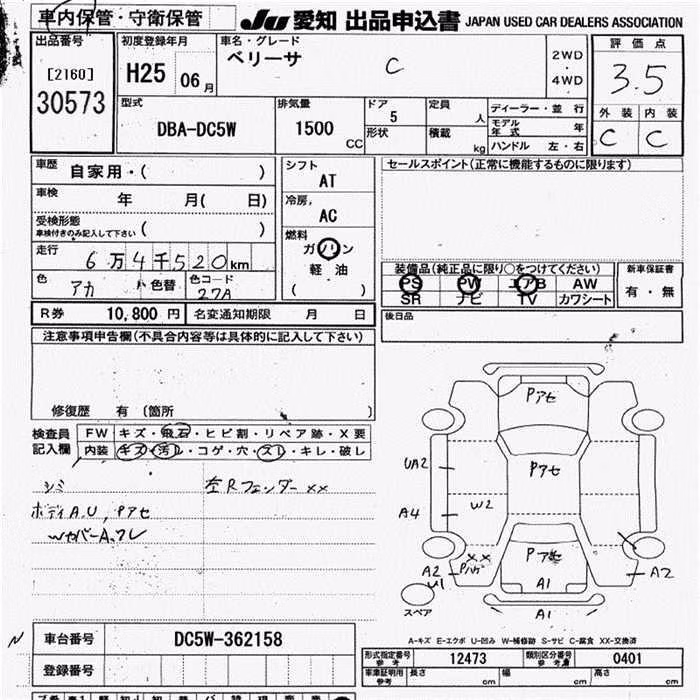 車内保管・守衛保管
JU 愛知 出品申込書 JAPAN USED CAR DEALERS ASSOCIATION
出品番号
[2160]
30573
初度登録年月
H25 06月
車名・グレード
ベリーサ C
2WD
・
4WD
評価点
3.5
外装 内装
C C
型式
DBA-DC5W
排気量
1500 CC
ドア
5
形状
定員 人
積載 kg
ディーラー・並 行
モデル年式 年
ハンドル 左・右
車歴 自家用・( )
車検 年 月( 日)
受検形態
車検付きのみ記入して下さい ( )
走行 6万4千520km
色 アカ 色替 色コード 27A
シフト
AT
冷房
AC
燃料
ガソリン
軽 油
( )
セールスポイント(正常に機能するものに限ります)
装備品(純正品に限り○をつけてください)
PS PW エアB AW
SR ナビ TV カワシート
新車保証書
有・無
後日品
R券 10,800円 名変通知期限 月 日
注意事項申告欄(不具合内容等は具体的に記入して下さい)
修復歴 有 (箇所 )
検査員記入欄
FW キズ・飛石・ヒビ割・リペア跡・X要
内装 キズ・汚レ・コゲ・穴・スレ・キレ・破レ
シミ 左Rフェンダー××
ボディA.U, Pアセ
WカバーA,ワレ
Pアセ
Pアセ
UA2
A4
W2
××
A2
W1
A1
A2
A1
スペア
A-キズ E-エクボ U-凹み W-補修跡 S-サビ C-腐食 XX-交換済
車台番号 DC5W-362158
登録番号
型式指定番号 参考 12473
類別区分番号 参考 0401
車庫証明用 参考 長さ cm 幅 cm 高さ cm